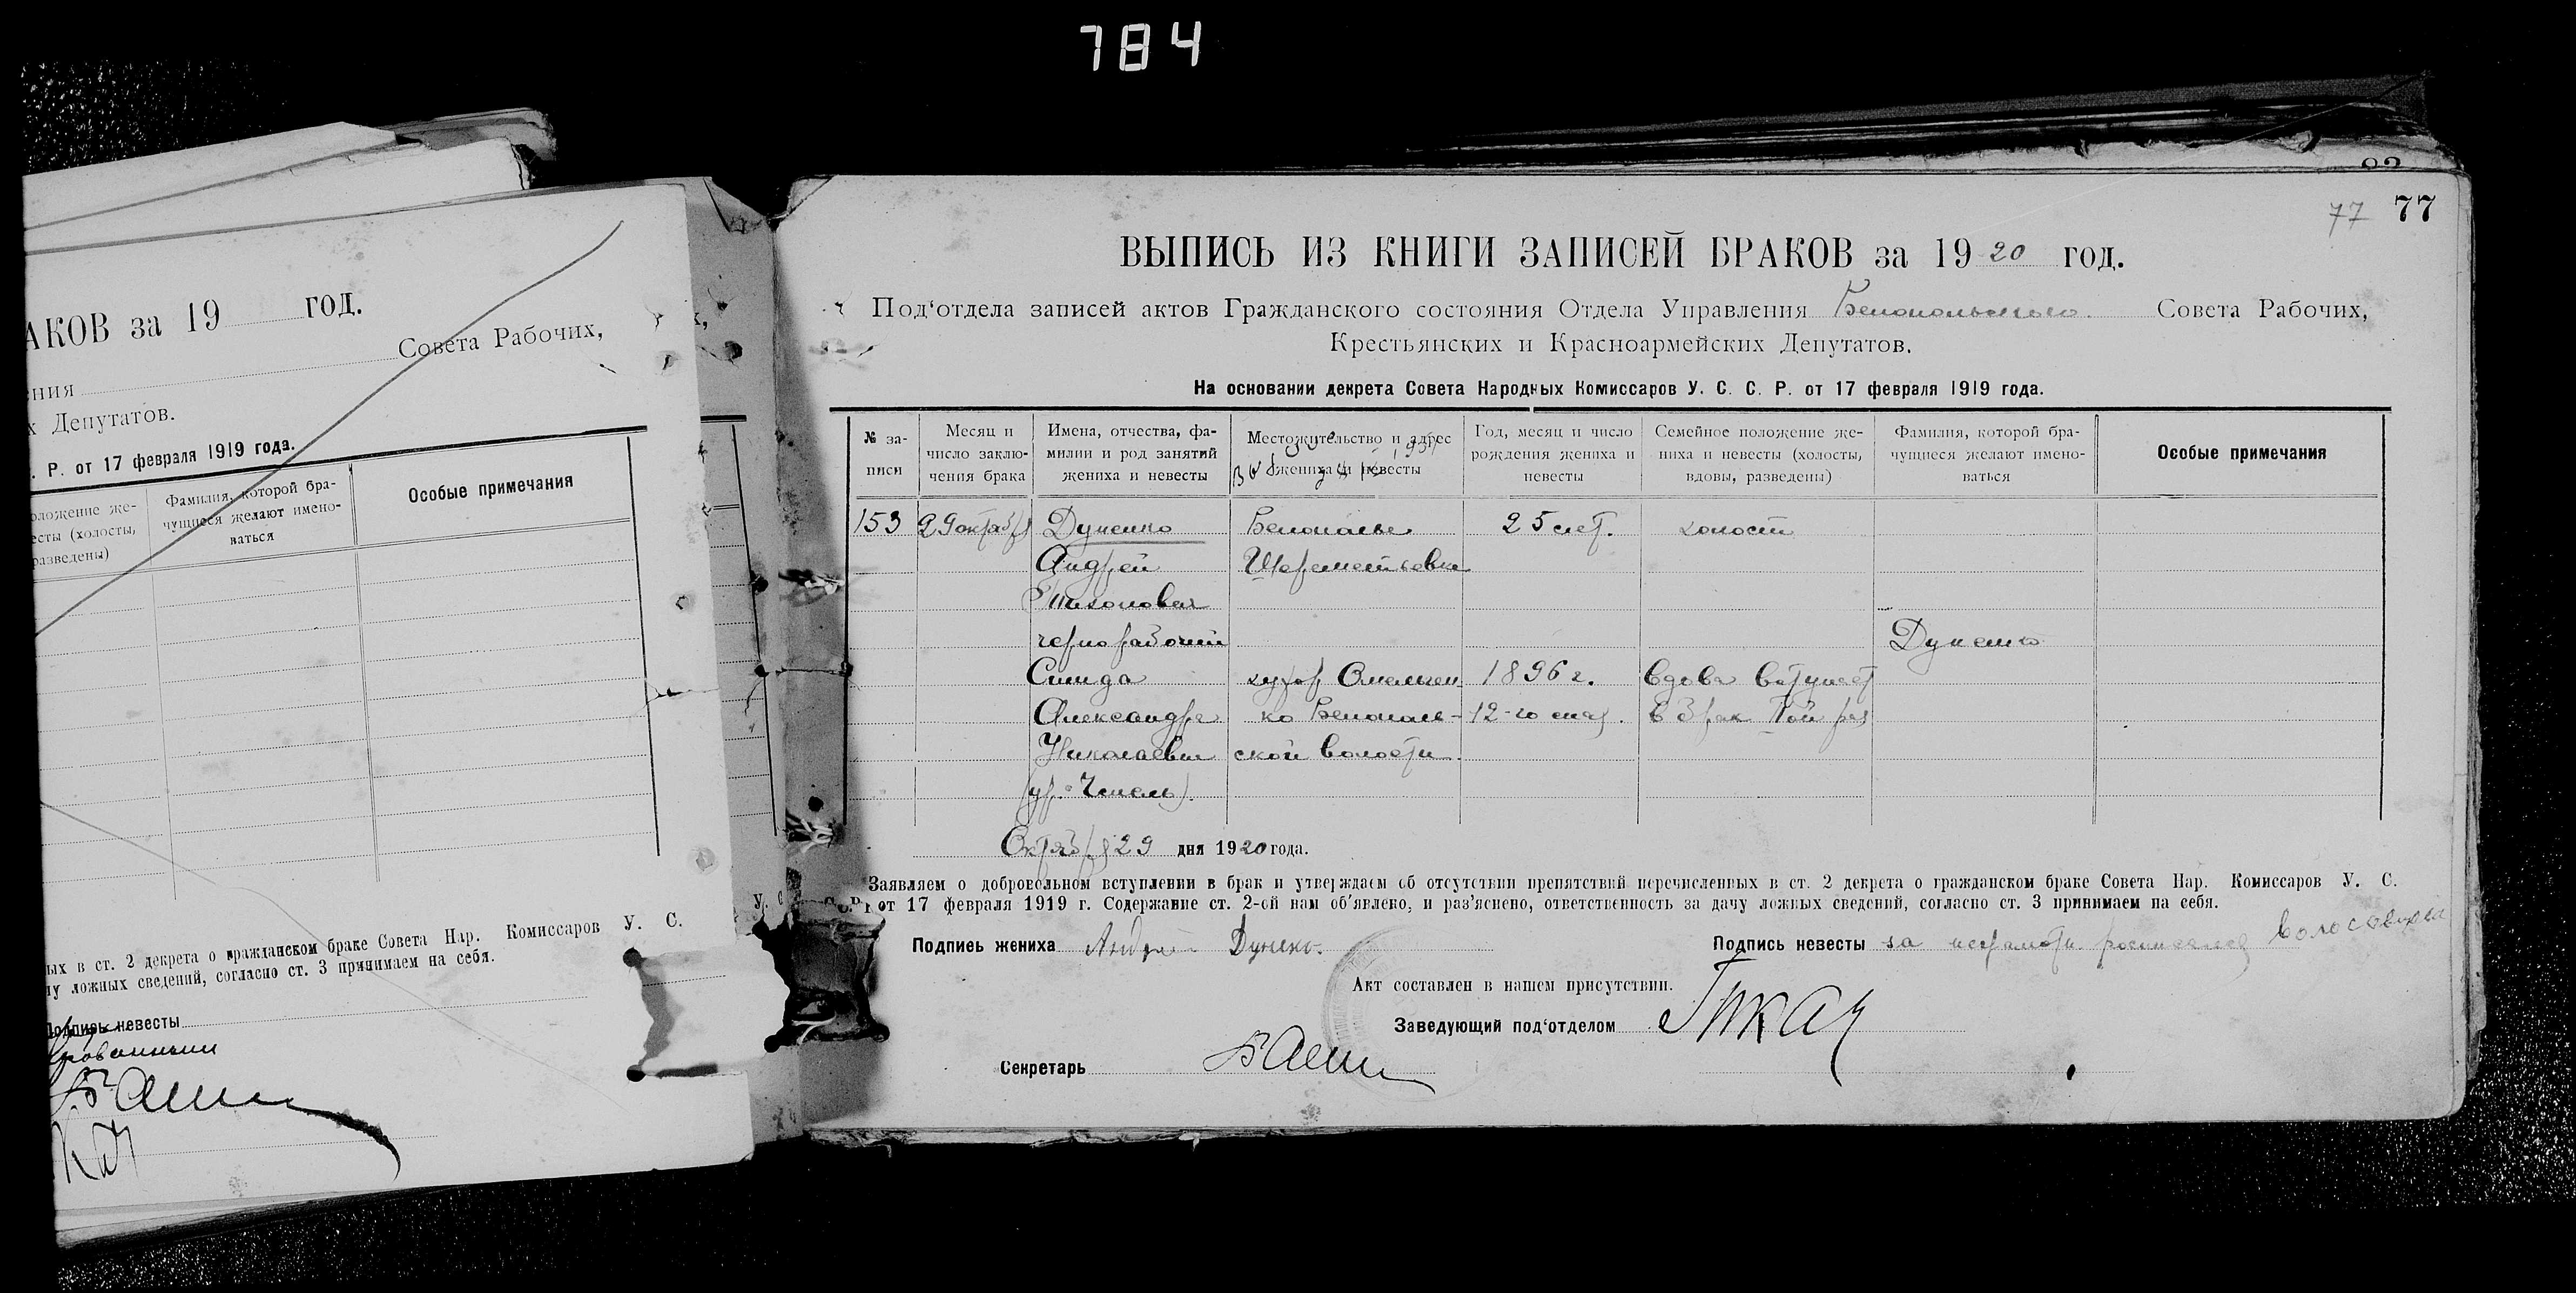 784
АКОВ за 19 год.
Совета Рабочих,
ения
х Депутатов.
. Р. от 17 февраля 1919 года.
оложение же-
есты (холосты,
разведены)
Фамилия, которой бра-
чущиеся желают имено-
ваться
Особые примечания
ных в ст. 2 декрета о гражданском браке Совета Нар. Комиссаров У. С.
чу ложных сведений, согласно ст. 3 принимаем на себя.
Подпись невесты
77 77
ВЫПИСЬ ИЗ КНИГИ ЗАПИСЕЙ БРАКОВ за 1920 год.
Под'отдела записей актов Гражданского состояния Отдела Управления Белопольского Совета Рабочих,
Крестьянских и Красноармейских Депутатов.
На основании декрета Совета Народных Комиссаров У. С. С. Р. от 17 февраля 1919 года.
№ за-
писи
Месяц и
число заклю-
чения брака
Имена, отчества, фа-
милии и род занятий
жениха и невесты
Местожительство и адрес
жениха и невесты
Год, месяц и число
рождения жениха и
невесты
Семейное положение же-
ниха и невесты (холосты,
вдовы, разведены)
Фамилия, которой бра-
чущиеся желают имено-
ваться
Особые примечания
153 29 октября Дуненко Белополье 25 лет. холост
Андрей
Тихонович
чернорабочий Дуненко
Александра ко Белополь- 12-го
Николаевна ской волости
Октября 29 дня 1920 года.
Заявляем о добровольном вступлении в брак и утверждаем об отсутствии препятствий перечисленных в ст. 2 декрета о гражданском браке Совета Нар. Комиссаров У. С.
С. Р. от 17 февраля 1919 г. Содержание ст. 2-ой нам об'явлено, и раз'яснено, ответственность за дачу ложных сведений, согласно ст. 3 принимаем на себя.
Подпись жениха Андрей Дуненко
Подпись невесты за неграмоти росписался
Акт составлен в нашем присутствии.
Заведующий под'отделом Ткач
Секретарь